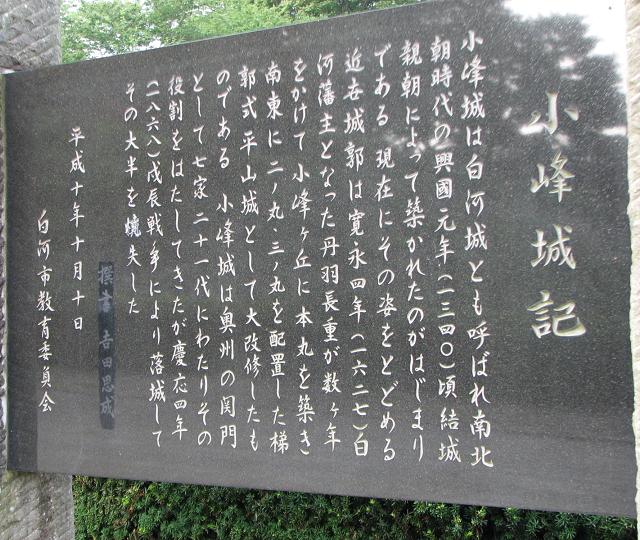 小峰城記
小峰城は白河城とも呼ばれ南北
朝時代の興國元年(一三四〇)頃結城
親朝によって築かれたのがはじまり
である 現在にその姿をとどめる
近世城郭は寛永四年(一六二七)白
河藩主となった丹羽長重が数ヶ年
をかけて小峰ヶ丘に本丸を築き
南東に二ノ丸・三ノ丸を配置した梯
郭式平山城として大改修したも
のである 小峰城は奥州の関門
として七家二十一代にわたりその
役割をはたしてきたが慶応四年
(一八六八)戊辰戦争により落城して
その大半を焼失した
平成十年十月十日
撰書 吉田思成
白河市教育委員会